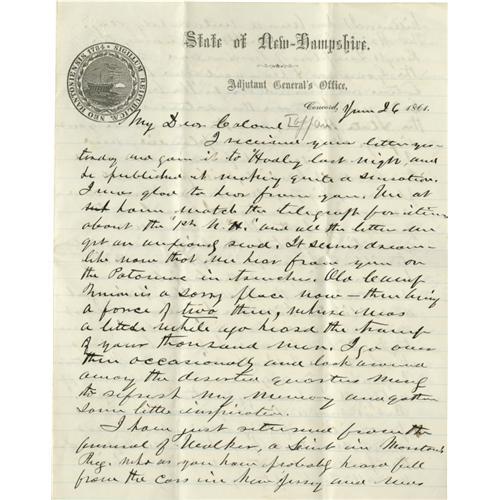 SIGILLUM REIPUBLICÆ NEO HANTONIENSIS 1784
State of New-Hampshire.
Adjutant General's Office,
Concord, June 26 1861.
My Dear Colonel
I received your letter yes-
terday and gave it to Hadly last night, and
he published it making quite a sensation.
I was glad to hear from you. We at
home watch the telegraph for items
about the "1st N.H." and all the letter we
get are anxiously read. It seems dream
like now that we hear from you on
the Potomac in trenches. Old Camp
Union is a sorry place now — there being
a force of two there, where was
a little while ago heard the tramp
of your thousand men. I go over
there occasionally and look around
among the deserted quarters
to refresh my memory and gather
some little inspiration.
I have just returned from the
funeral of Walker, a Lieut in Marston's
Reg. who as you have probably heard fell
from the cars in New Jersey and was